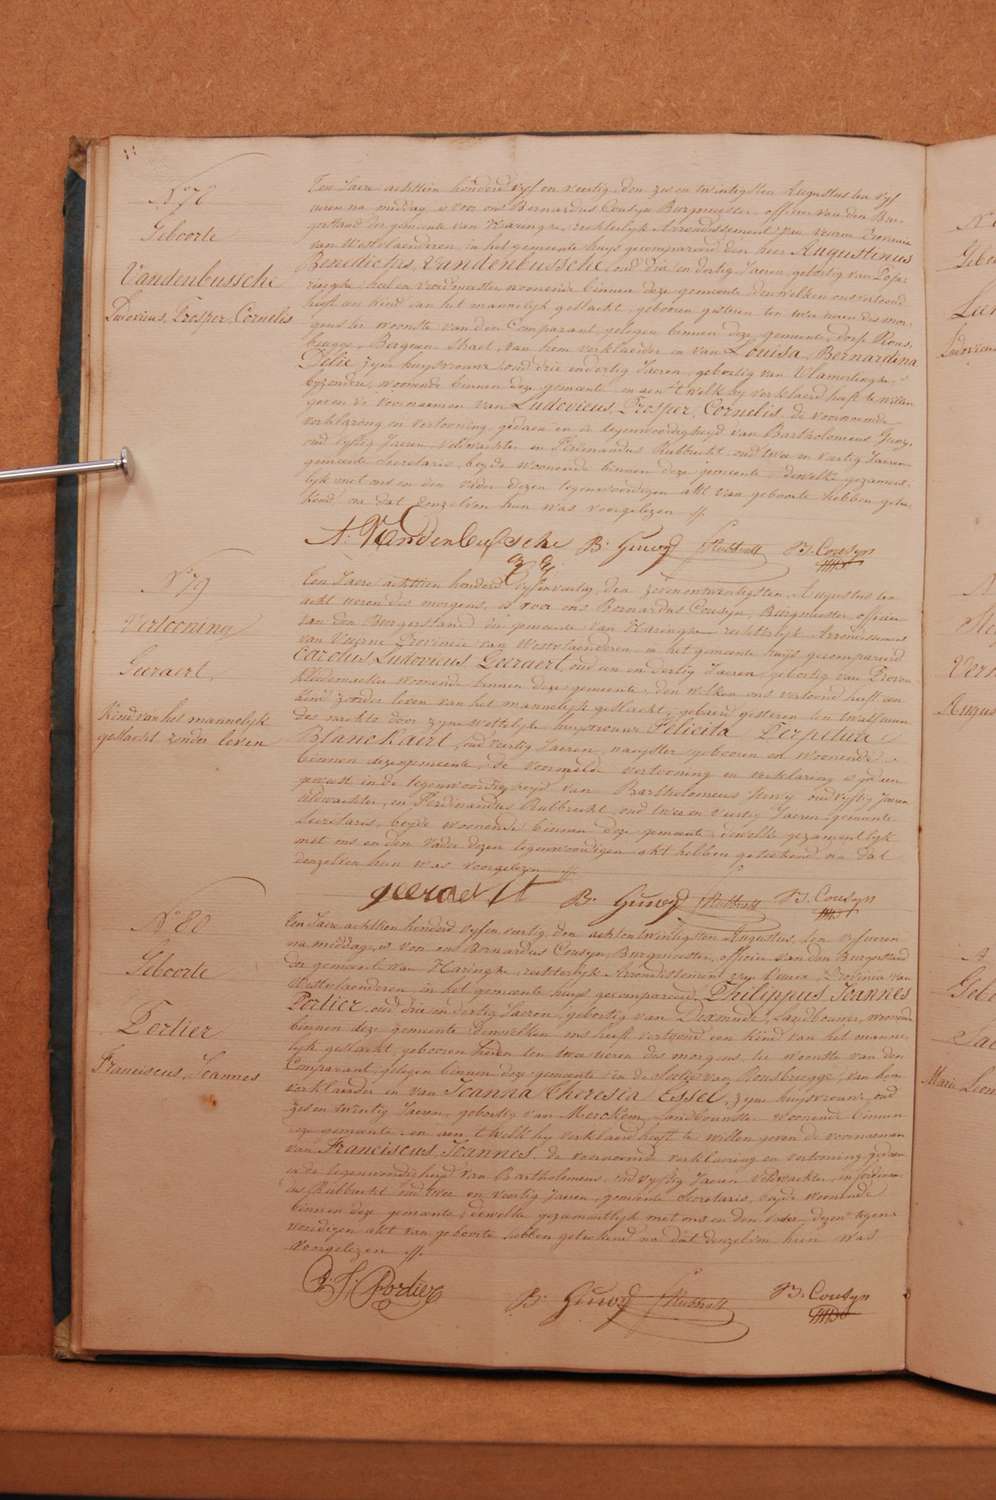 N° 78
Geboorte
Vandenbussche
Ludovicus, Prosper, Cornelis
Ten Jaere achttien honderd vyf en veertig, den zes en twintigsten Augustus ten vyf
uren na middag, is voor ons Bernardus Cousyn Burgmeester, officier van den Bur-
gerstand der gemeente van Haringhe, rechterlyk Arrondissement van Veurne Provincie
van Westvlaenderen, in het gemeente huys gecompareerd den heer Augustinus
Benedictus, Vandenbussche, oud drie en dertig Jaeren, geboortig van Pope-
ringhe, heel en vroedmeester woonende binnen deze gemeente, den welken ons vertoond
heeft een Kind van het mannelyk geslacht, geboren gisteren ten twee uren des mor-
gens ter woonste van den Comparant, gelegen binnen deze gemeente, dorp Rous-
brugge, Bergsche Straet, van hem verklaerder en van Louisa, Bernardina
Delie, zyne huysvrouw, oud drie en dertig Jaeren, geboortig van Vlamertinghe,
byzondere, woonende binnen deze gemeente, en aen 't welk hy verklaerd heeft te willen
geven de voornaemen van Ludovicus, Prosper, Cornelis, de voornoemde
verklaering en vertooning gedaen en in de tegenwoordigheyd van Bartholomeus
oud vyftig Jaeren, veldwachter en Ferdinandus Rubbrecht, oud twee en veertig Jaeren
gemeente Secretaris, beyde woonende binnen deze gemeente, dewelke gezament-
lyk met ons en den vader dezen tegenwoordigen akt van geboorte hebben getee-
kend, na dat denzelven hun was voorgelezen
A: Vandenbussche B: Cousyn
N° 79
Vertooning
Geeraert,
Kind van het mannelyk
geslacht zonder leven
Een Jaere achttien honderd vyfenveertig, den zevenentwintigsten Augustus ten
acht uren des morgens, is voor ons Bernardus Cousyn, Burgmeester, officier
van den Burgerstand der gemeente van Haringhe rechterlyk Arrondissement
van Veurne Provincie van Westvlaenderen, in het gemeente huys gecompareerd
Carolus Ludovicus Geeraert, oud een en dertig Jaeren, geboortig van Proven
woonende binnen deze gemeente, den welken ons vertoond heeft een
kind zonder leven van het mannelyk geslacht, gebaerd gisteren ten twaelf uren
des nachts door zyne wettelyke huysvrouw Felicita Perpetua
Blanckaert, oud veertig Jaeren, naeyster geboren en woonende
binnen deze gemeente, de voormelde vertooning en verklaering is gedaen
geweest in de tegenwoordigheyd van Bartholomeus oud vyftig Jaeren
veldwachter, en Ferdinandus Rubbrecht, oud twee en veertig Jaeren gemeente
Secretaris, beyde woonende binnen deze gemeente, dewelke gezamentlyk
met ons en den vader dezen tegenwoordigen akt hebben geteekend na dat
denzelven hun was voorgelezen
geeraert B: Cousyn
N° 80
Geboorte
Portier
Franciscus, Joannes
Een Jaere achttien honderd vyfenveertig, den achtentwintigsten Augustus, ten vyf uren
na middag, is voor ons Bernardus Cousyn, Burgmeester, officier van den Burgerstand
der gemeente van Haringhe, rechterlyk Arrondissement van Veurne Provincie van
Westvlaenderen, in het gemeente huys gecompareerd, Philippus Joannes
Portier, oud drie en dertig Jaeren, geboortig van Dixmude, Landbouwer, woonende
binnen deze gemeente denwelken ons heeft vertoond een Kind van het manne-
lyk geslacht, geboren heden ten twee uren des morgens, ter woonste van den
Comparant gelegen binnen deze gemeente, in de Sectie van Rousbrugge, van hem
verklaerder en van Joanna Theresia Essel, zyne huysvrouw, oud
zes en twintig Jaeren, geboortig van Merckem, Landbouwster woonende binnen
deze gemeente, en aen 't welk hy verklaerd heeft te willen geven de voornaemen
van Franciscus, Joannes, de voornoemde verklaering en vertooning gedaen
in de tegenwoordigheyd van Bartholomeus, oud vyftig Jaeren Veldwachter, en Ferdinan-
dus Rubbrecht oud twee en veertig Jaeren, gemeente Secretaris, beyde woonende
binnen deze gemeente, dewelke gezamentlyk met ons en den vader dezen tegen-
woordigen akt van geboorte hebben geteekend na dat denzelven hun was
voorgelezen
P. J. Portier B: Cousyn